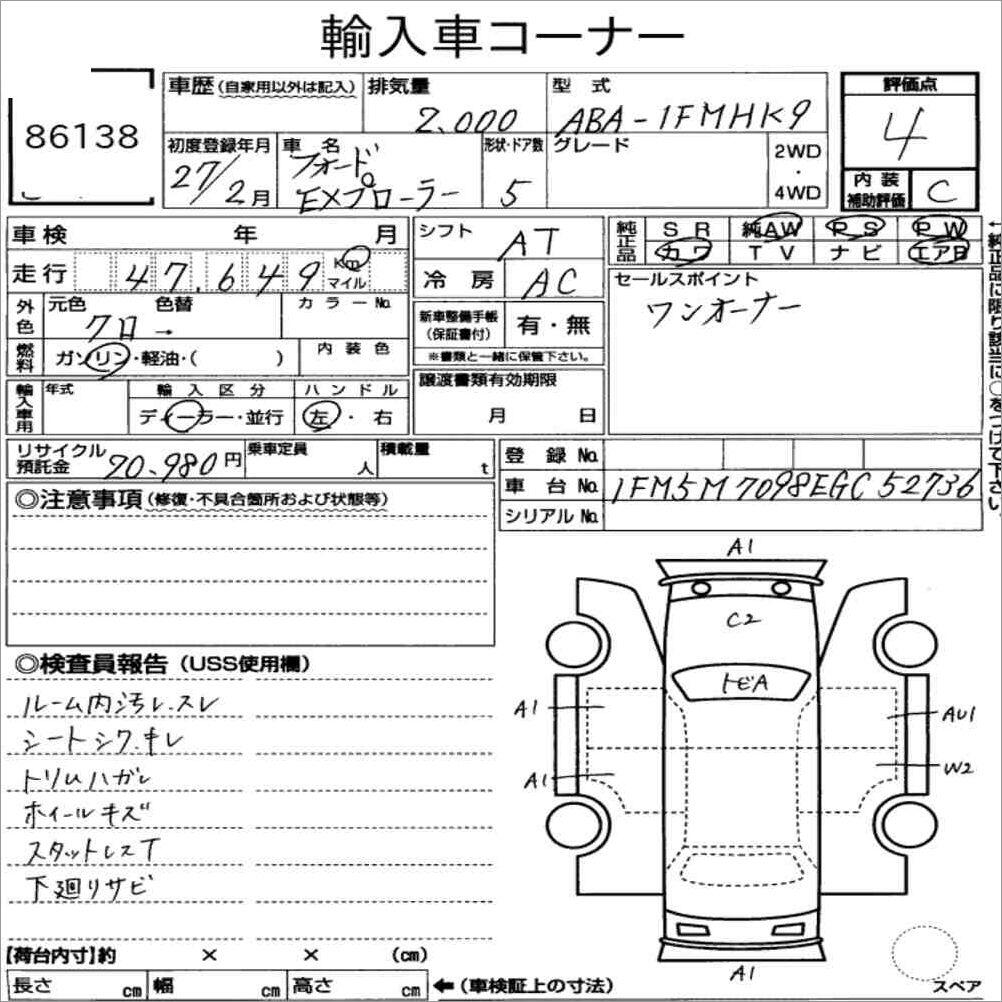 輸入車コーナー
86138
車歴(自家用以外は記入) 排気量 2,000 型式 ABA-1FMHK9 評価点 4
初度登録年月 27/2月 車名 フォード EXプローラー 形状・ドア数 5 グレード 2WD・4WD 内装補助評価 C
車検 年 月 シフト AT 純正品 SR 純AW PS PW
カワ TV ナビ エアB
走行 47,649 Km マイル 冷房 AC セールスポイント
ワンオーナー
外色 元色 色替 カラーNo.
クロ→
新車整備手帳(保証書付) 有・無
※書類と一緒に保管下さい。
燃料 ガソリン・軽油・( ) 内装色
輸入車用 年式 輸入区分 ハンドル
ディーラー・並行 左・右
譲渡書類有効期限
月 日
←純正品に限り該当に○をつけて下さい。
リサイクル預託金 20,980円 乗車定員 人 積載量 t
登録No.
車台No. 1FM5M7098EGC52736
シリアルNo.
◎注意事項(修復・不具合箇所および状態等)
◎検査員報告(USS使用欄)
ルーム内汚レ.スレ
シートシワ.キレ
トリムハガレ
ホイールキズ
スタットレスT
下廻りサビ
A1
C2
トビA
A1
AU1
A1
W2
A1
スペア
【荷台内寸】約 × × (cm)
長さ cm 幅 cm 高さ cm ←(車検証上の寸法)